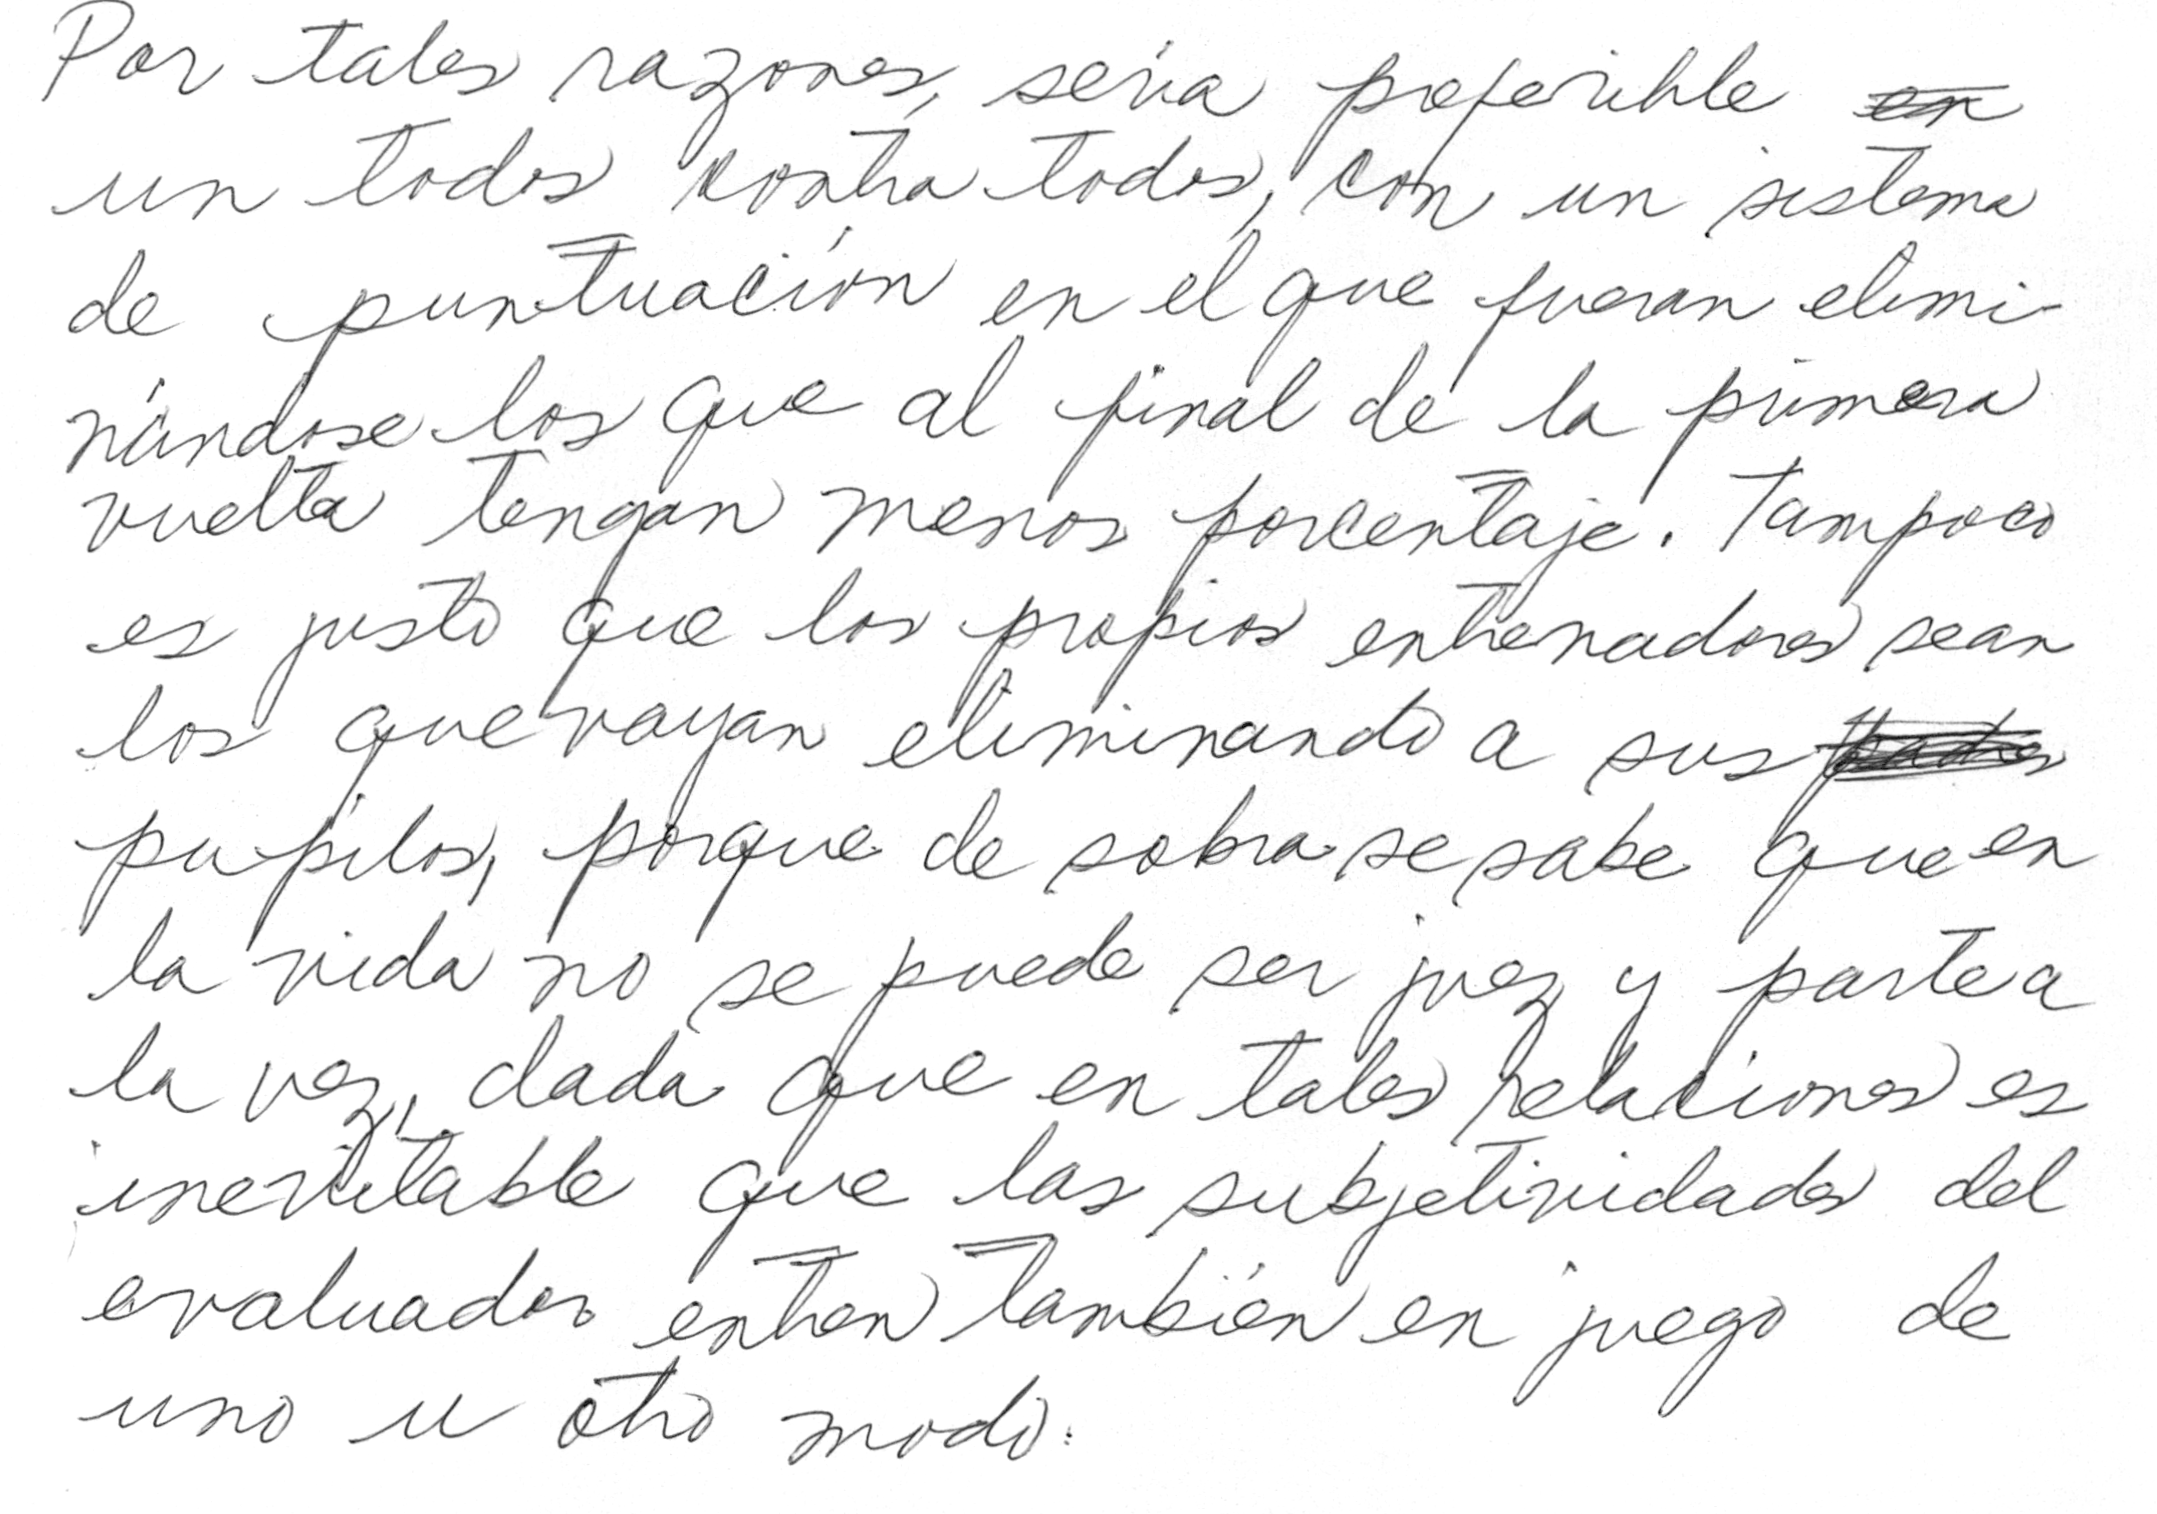 Por tales razones, sería preferible en
un todos contra todos, con un sistema
de puntuación en el que fueran elimi-
nándose los que al final de la primera
vuelta tengan menos porcentaje. Tampoco
es justo que los propios entrenadores sean
los que vayan eliminando a sus
pupilos, porque de sobra se sabe que en
la vida no se puede ser juez y parte a
la vez, dada que en tales relaciones es
inevitable que las subjetividades del
evaluador entren también en juego de
uno u otro modo.